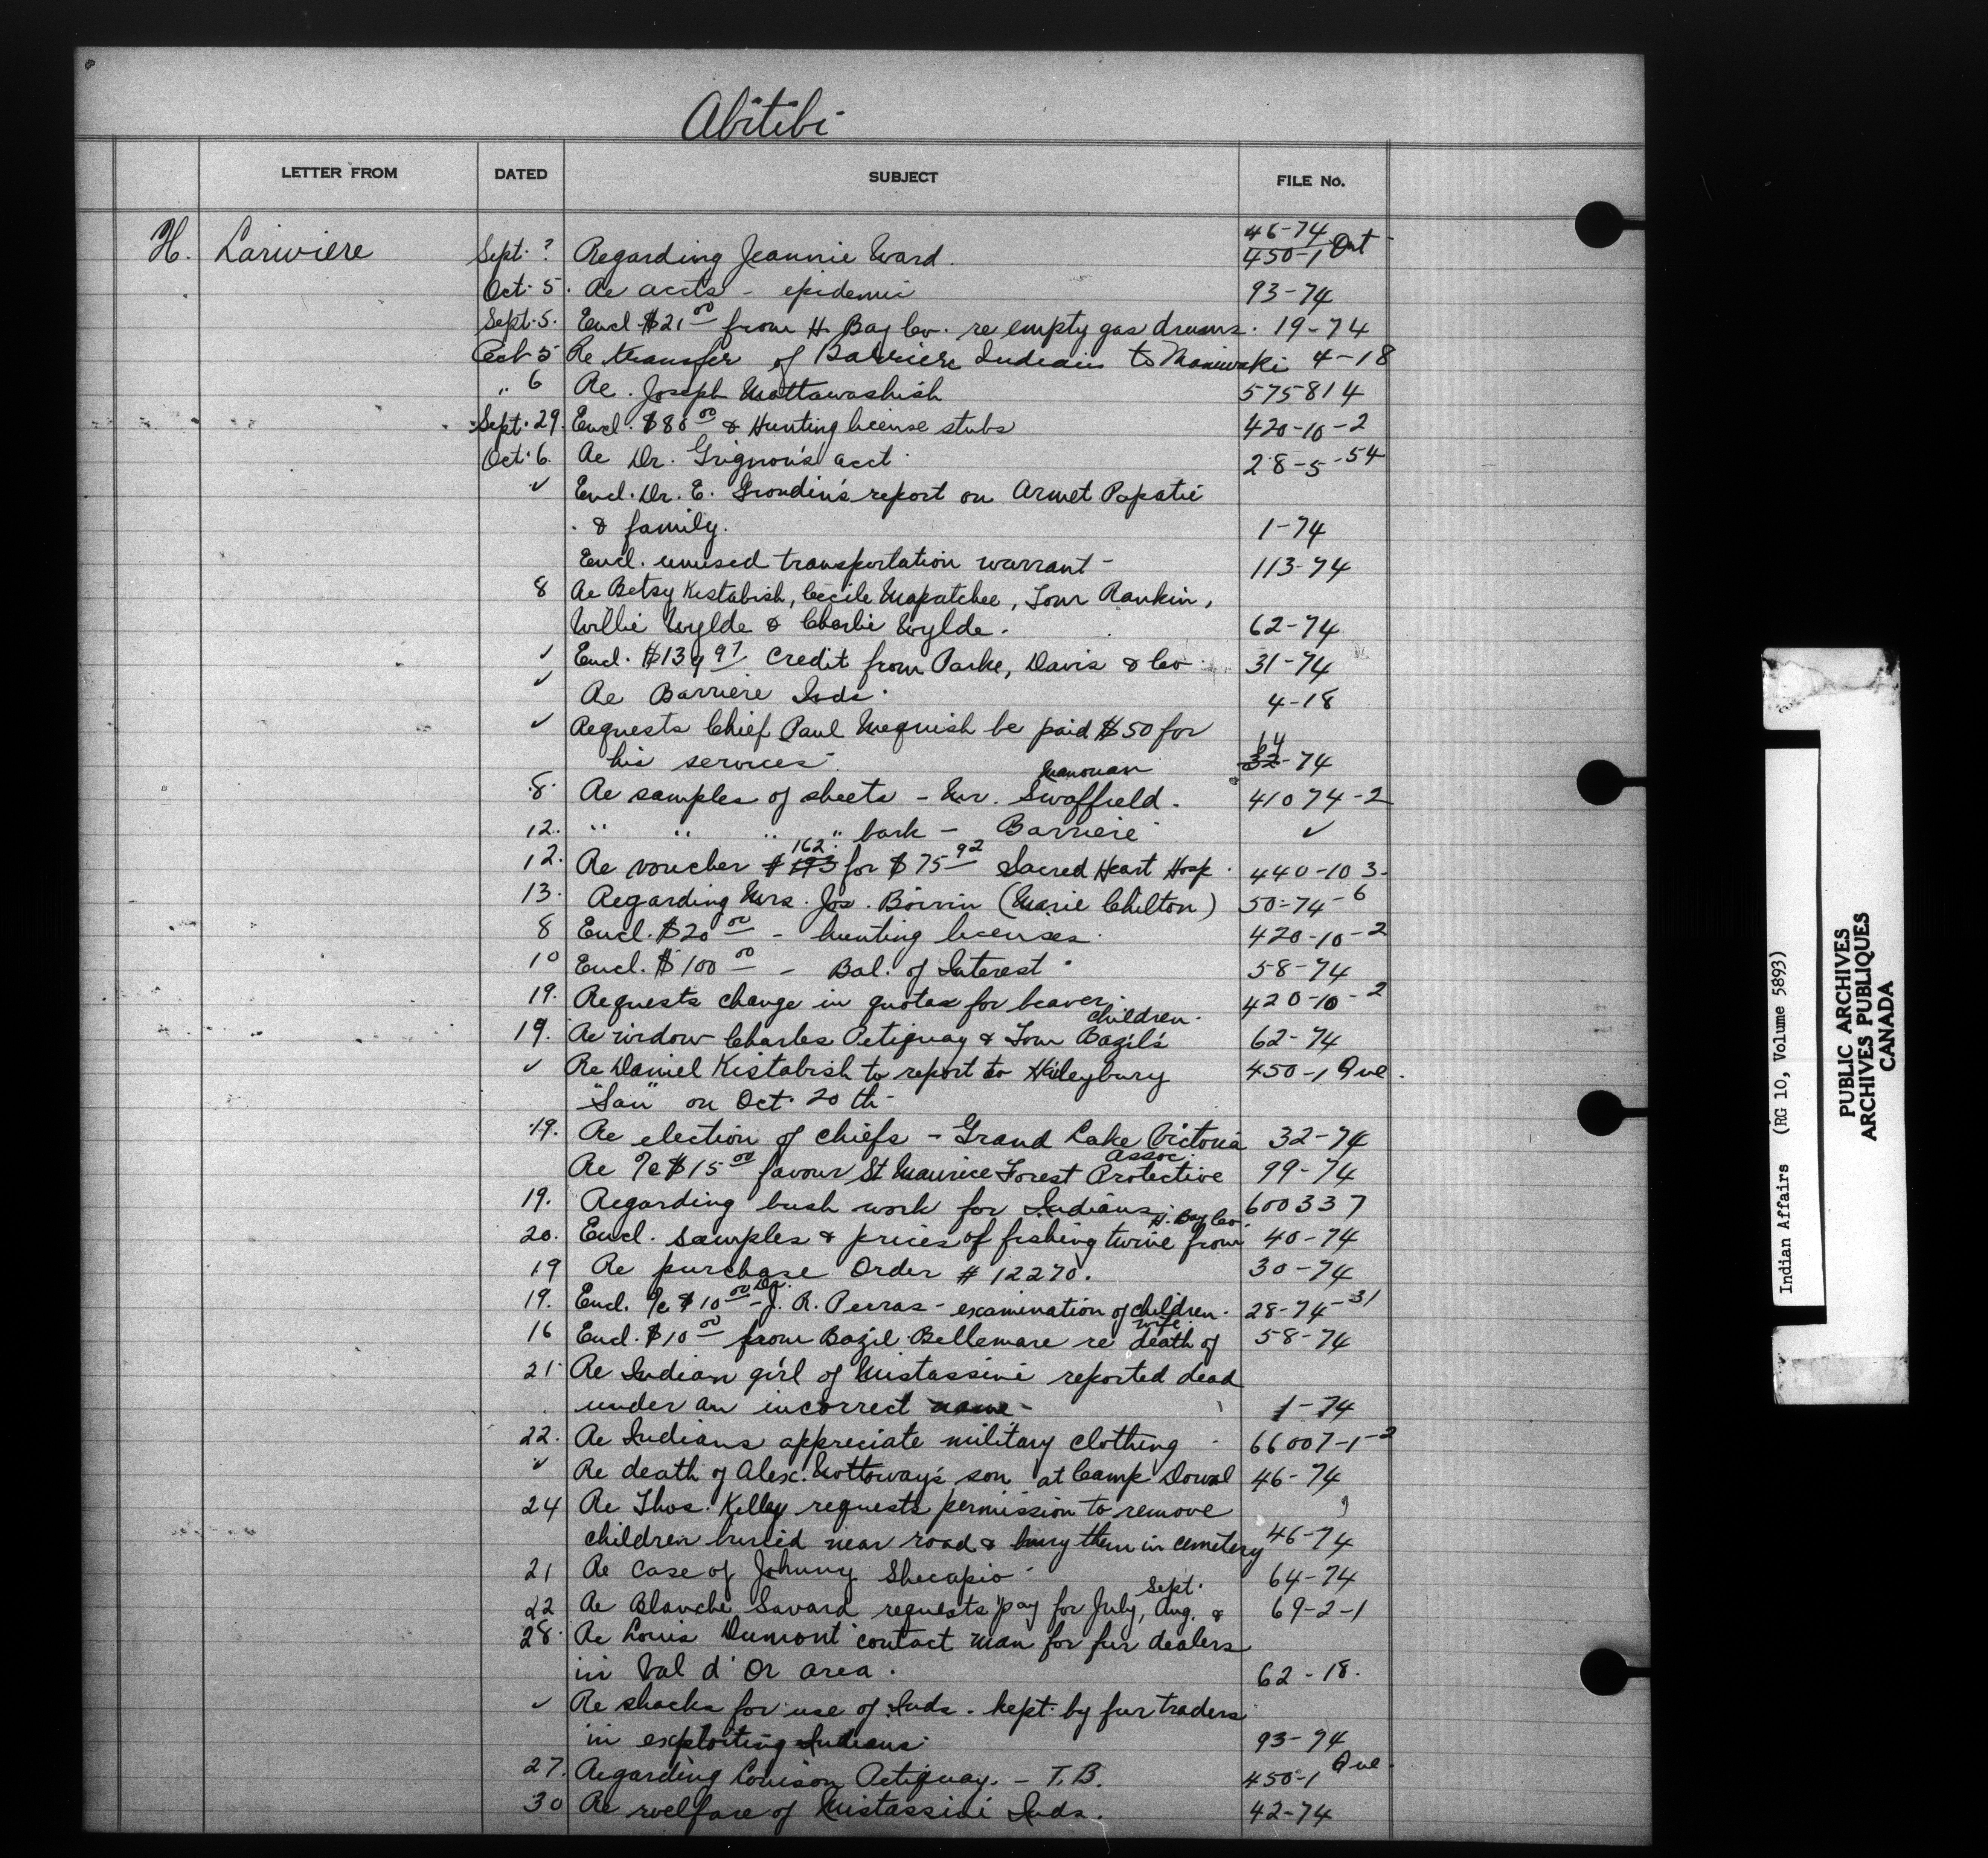 Abitibi
LETTER FROM DATED SUBJECT FILE No.
46-74
H. Lariviere Sept. ? Regarding Jeannie Ward. 450-1 Ont
Oct. 5. Re accts - epidemic 93-74
Sept. 5. Encl. $21.00 from H. Bay Co. re empty gas drums. 19-74
Oct 5 Re transfer of Barriere Indians to Maniwaki 4-18
" 6 Re. Joseph Mottawashish 575814
Sept. 29. Encl. $80.00 & Hunting license stubs 420-10-2
Oct. 6. Re Dr. Grignon's acct. 28-5-54
✓ Encl. Dr. E. Grondin's report on Armet Papatie
& family. 1-74
Encl. unused transportation warrant - 113-74
8 Re Betsy Kistabish, Cecile Mapatchee, Tom Rankin,
Willie Wylde & Charlie Wylde. 62-74
✓ Encl. $139.97 credit from Parke, Davis & Co. 31-74
✓ Re Barriere Inds. 4-18
✓ Requests Chief Paul Mequish be paid $50 for
his services 64 32-74
8. Re samples of sheets - Mr. Swaffield. Manouan 41074-2
12. " " " " bark - Barriere ✓
12. Re voucher # 193 162 for $75.92 Sacred Heart Hosp. 440-10 3.
13. Regarding Mrs. Jos. Boivin (Marie Chilton) 50-74-6
8 Encl. $20.00 - hunting licenses. 420-10-2
10 Encl. $100.00 - Bal. of Interest 58-74
19. Requests change in quotas for beaver. 420-10-2
19. Re widow Charles Petiquay & Tom Bazil's children. 62-74
✓ Re Daniel Kistabish to report to Haileybury 450-1 Que.
"San" on Oct. 20 th-
19. Re election of chiefs - Grand Lake Victoria 32-74
Re %c $15.00 favour St Maurice Forest Protective Assoc. 99-74
19. Regarding bush work for Indians. 600337
20. Encl. samples & prices of fishing twine from H. Bay Co. 40-74
19 Re purchase Order # 12270. 30-74
19. Encl. %c $10.00 - Dr. J. R. Perras - examination of children. 28-74-31
16 Encl. $10.00 from Bazil Bellemare re death of wife. 58-74
21 Re Indian girl of Mistassini reported dead
under an incorrect name - 1-74
22. Re Indians appreciate military clothing 66007-1-2
✓ Re death of Alex. Nottoway's son at Camp 46-74
24 Re Thos. Kelley requests permission to remove
children buried near road & bury them in cemetery 46-74
21 Re case of Johnny Shecapio 64-74
22 Re Blanche Savard requests pay for July, Aug. & Sept. 69-2-1
28. Re Louis Dumont contact man for fur dealers
in Val d'Or area. 62-18.
✓ Re shacks for use of Inds. kept by fur traders
in exploiting Indians 93-74
27. Regarding Louison Petiquay. - T.B. 450-1 Que.
30 Re welfare of Mistassini Inds. 42-74
Indian Affairs (RG 10, Volume 5893)
PUBLIC ARCHIVES
ARCHIVES PUBLIQUES
CANADA